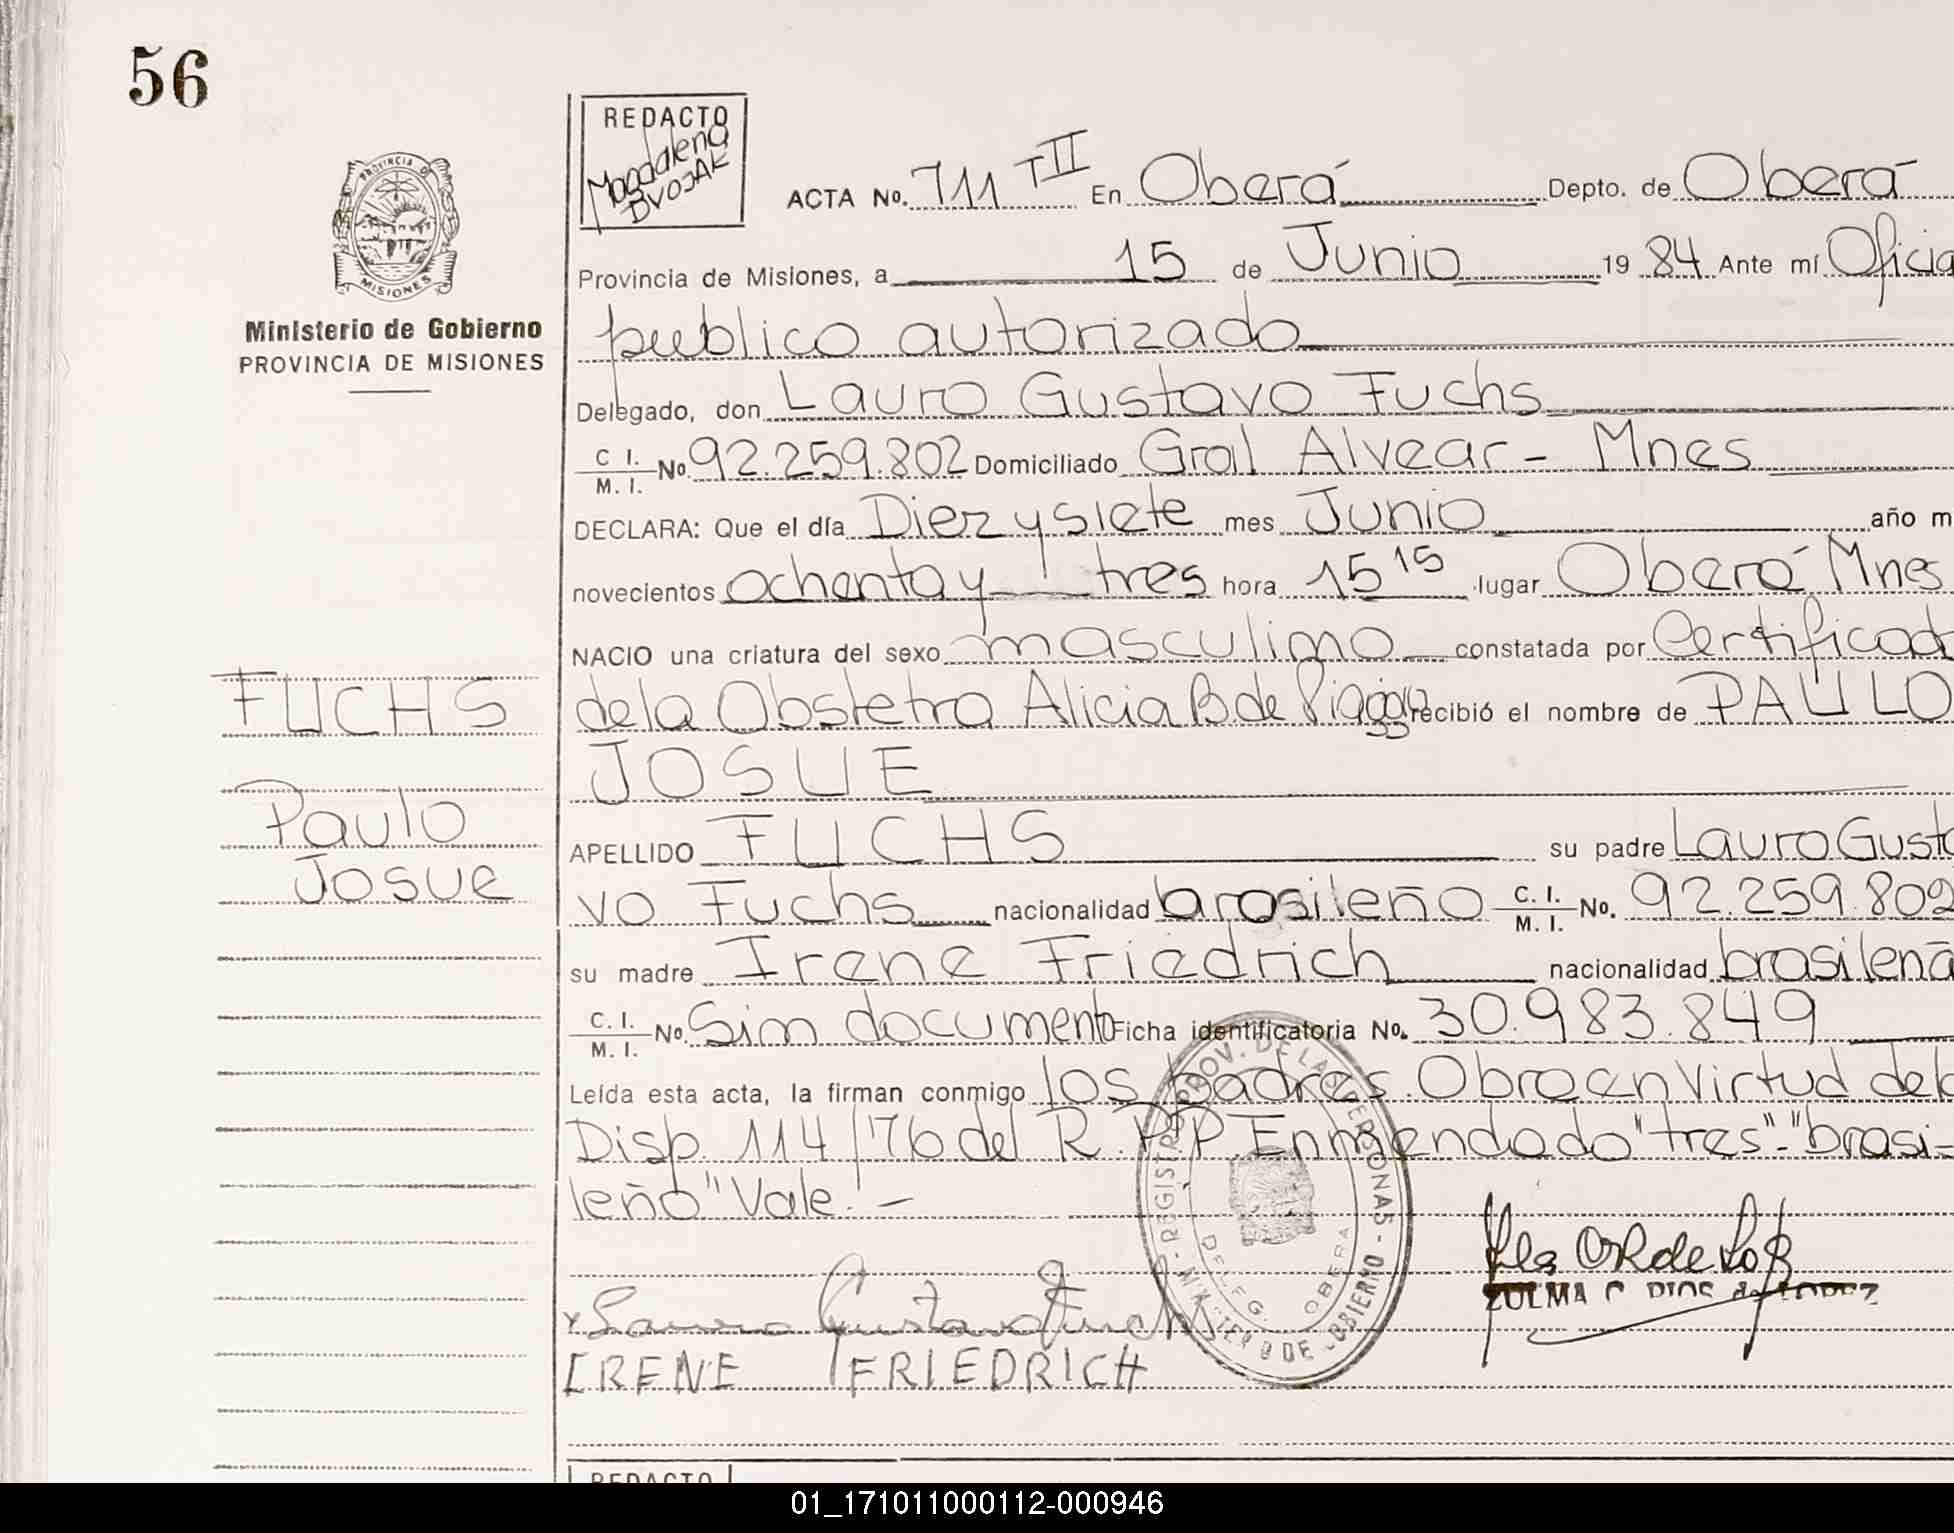 56
REDACTO
Magdalena
DVOJAK
PROVINCIA D
MISIONES
Ministerio de Gobierno
PROVINCIA DE MISIONES
ACTA No. 711 TII En Oberá Depto. de Oberá
Provincia de Misiones, a 15 de Junio 19 84 Ante mí Oficia
publico autorizado
Delegado, don Lauro Gustavo Fuchs
C I. M. I. No. 92.259.802 Domiciliado Gral Alvear - Mnes
DECLARA: Que el día Diez y siete mes Junio año m
novecientos ochenta y tres hora 15 15 lugar Oberá Mnes
NACIO una criatura del sexo masculino constatada por Certificad
de la Obstetra Alicia B de recibió el nombre de PAULO
JOSUE
FUCHS
Paulo
Josue
APELLIDO FUCHS su padre Lauro Gusta
vo Fuchs nacionalidad brasileño C. I. M. I. No. 92.259.802
su madre Irene Friedrich nacionalidad brasileña
C. I. M. I. No. Sin documento Ficha identificatoria No. 30.983.849
Leída esta acta, la firman conmigo los padres. Obra en virtud dela
Disp. 114/76 del R.P.P. Enmendado "tres"-"brasi-
leño" Vale. -
REGISTRO PROV. DE LAS PERSONAS - MINISTERIO DE GOBIERNO
DELEG. OBERA
Lauro Gustavo Fuchs
IRENE FRIEDRICH
ZULMA C. RIOS de LOPEZ
REDACTO
01_171011000112-000946